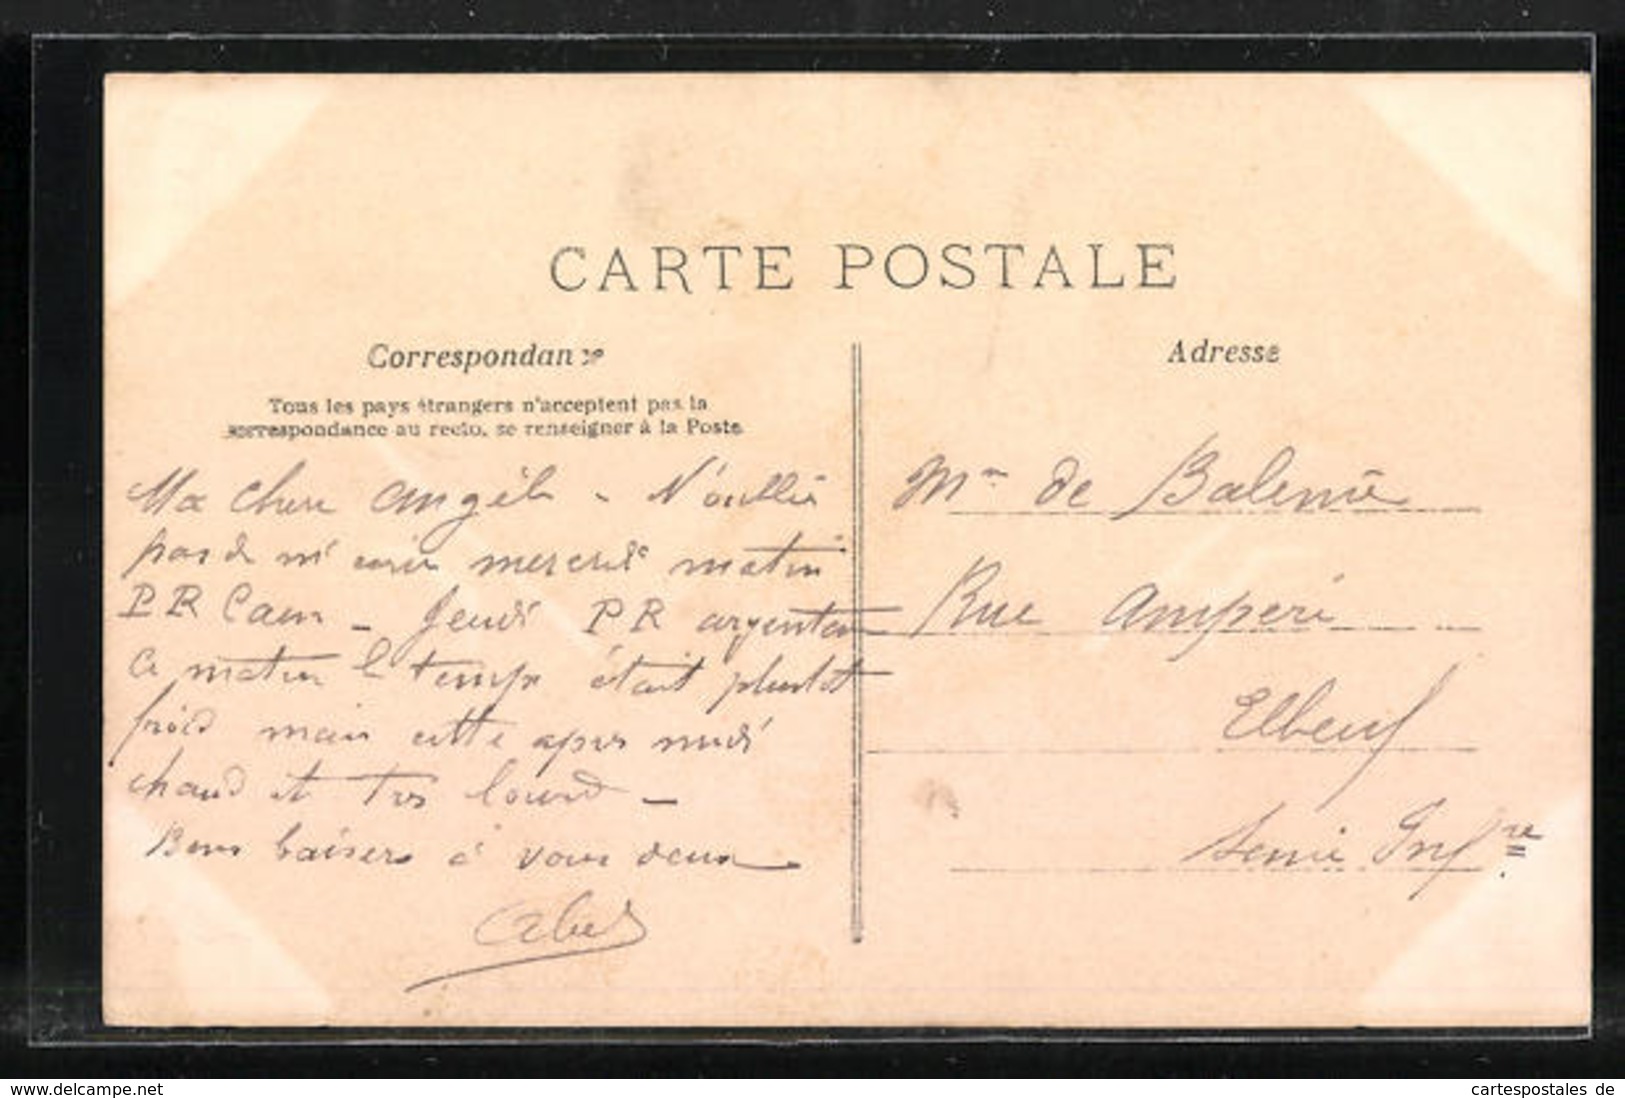 CARTE POSTALE
Correspondance
Tous les pays étrangers n'acceptent pas la
correspondance au recto, se renseigner à la Poste
Ma chere Angèle - N'oublie
pas de m'écrire mercredi matin
PR Caen - Jeudi PR argentan
Ce matin le temps était plutot
froid mais cette apres midi
chaud et tres lourd -
Bons baisers à vous deux
Abel
Adresse
Mme de
Rue Ampere
Elbeuf
Seine Infre
www.delcampe.net
cartespostales de